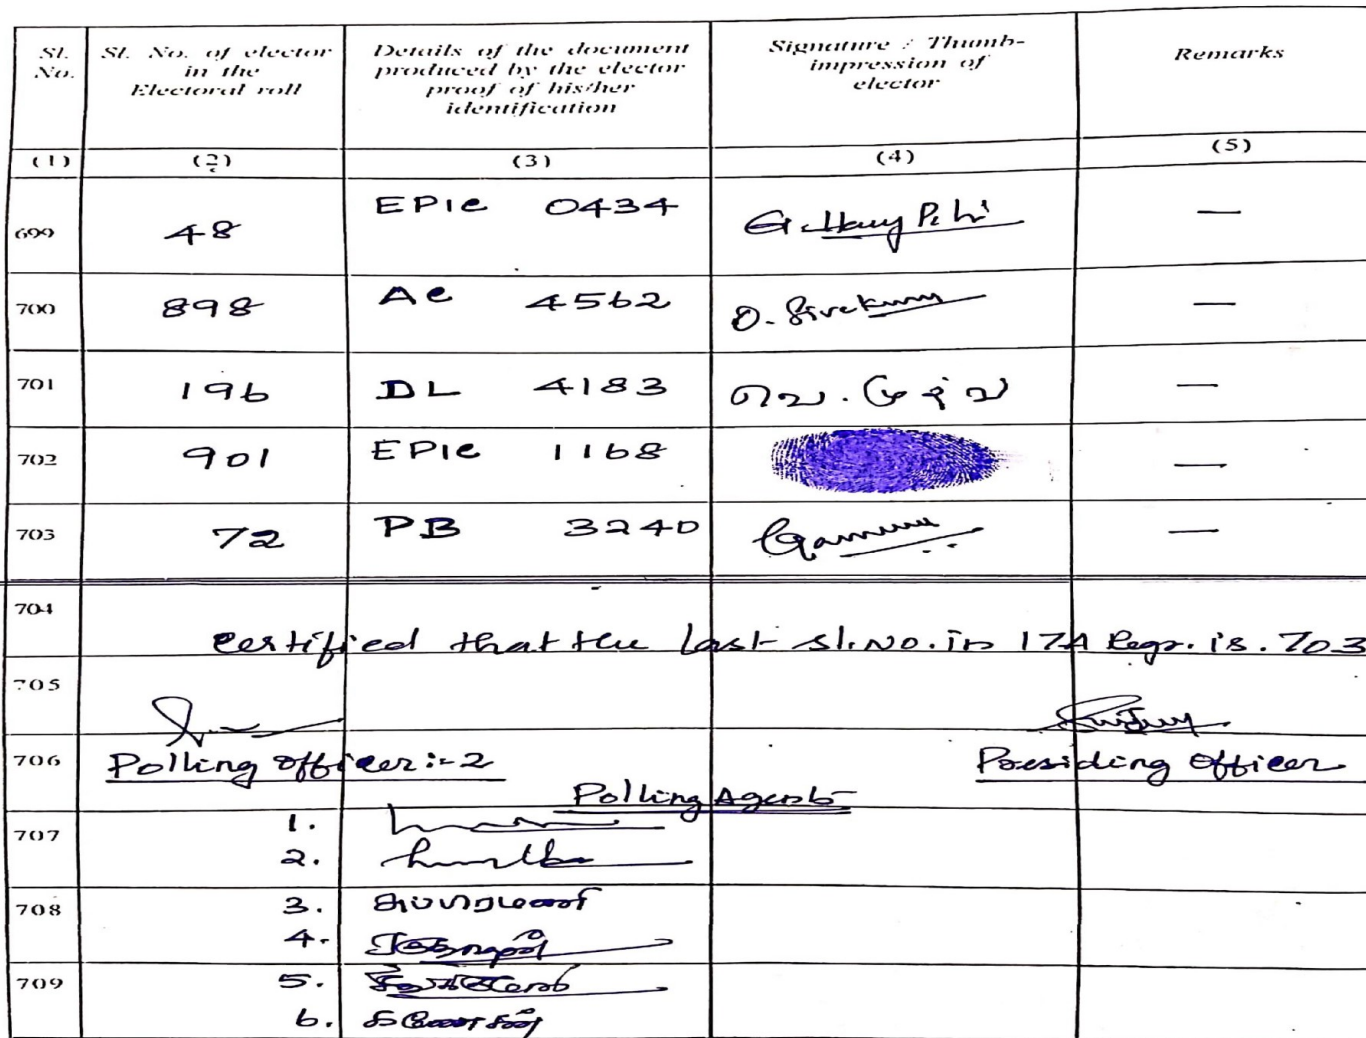 Sl. No. Sl. No. of elector in the Electoral roll Details of the document produced by the elector proof of his/her identification Signature / Thumb-impression of elector Remarks
(1) (2) (3) (4) (5)
699 48 EPIC 0434 —
700 898 AC 4562 —
701 196 DL 4183 —
702 901 EPIC 1168 —
703 72 PB 3240 —
704
Certified that the last Sl.No. in 17A Regr. is. 703
705
706 Polling officer:-2 Presiding Officer
Polling Agents
707 1.
2.
708 3.
4.
709 5.
6.